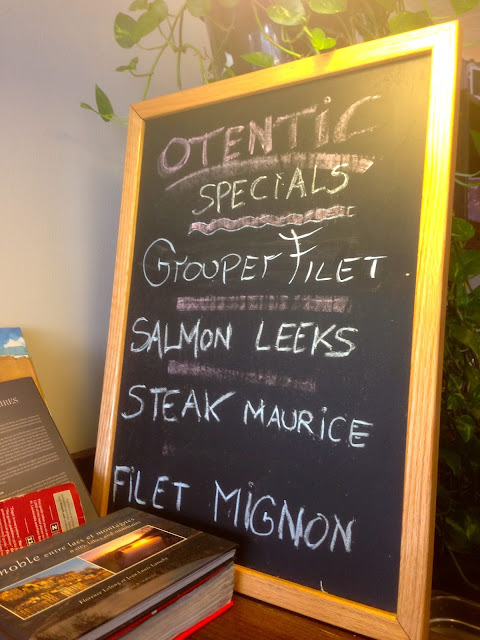 OTENTIC
SPECIALS
Grouper Filet
SALMON LEEKS
STEAK MAURICE
FILET MIGNON
noble entre lacs et montagnes